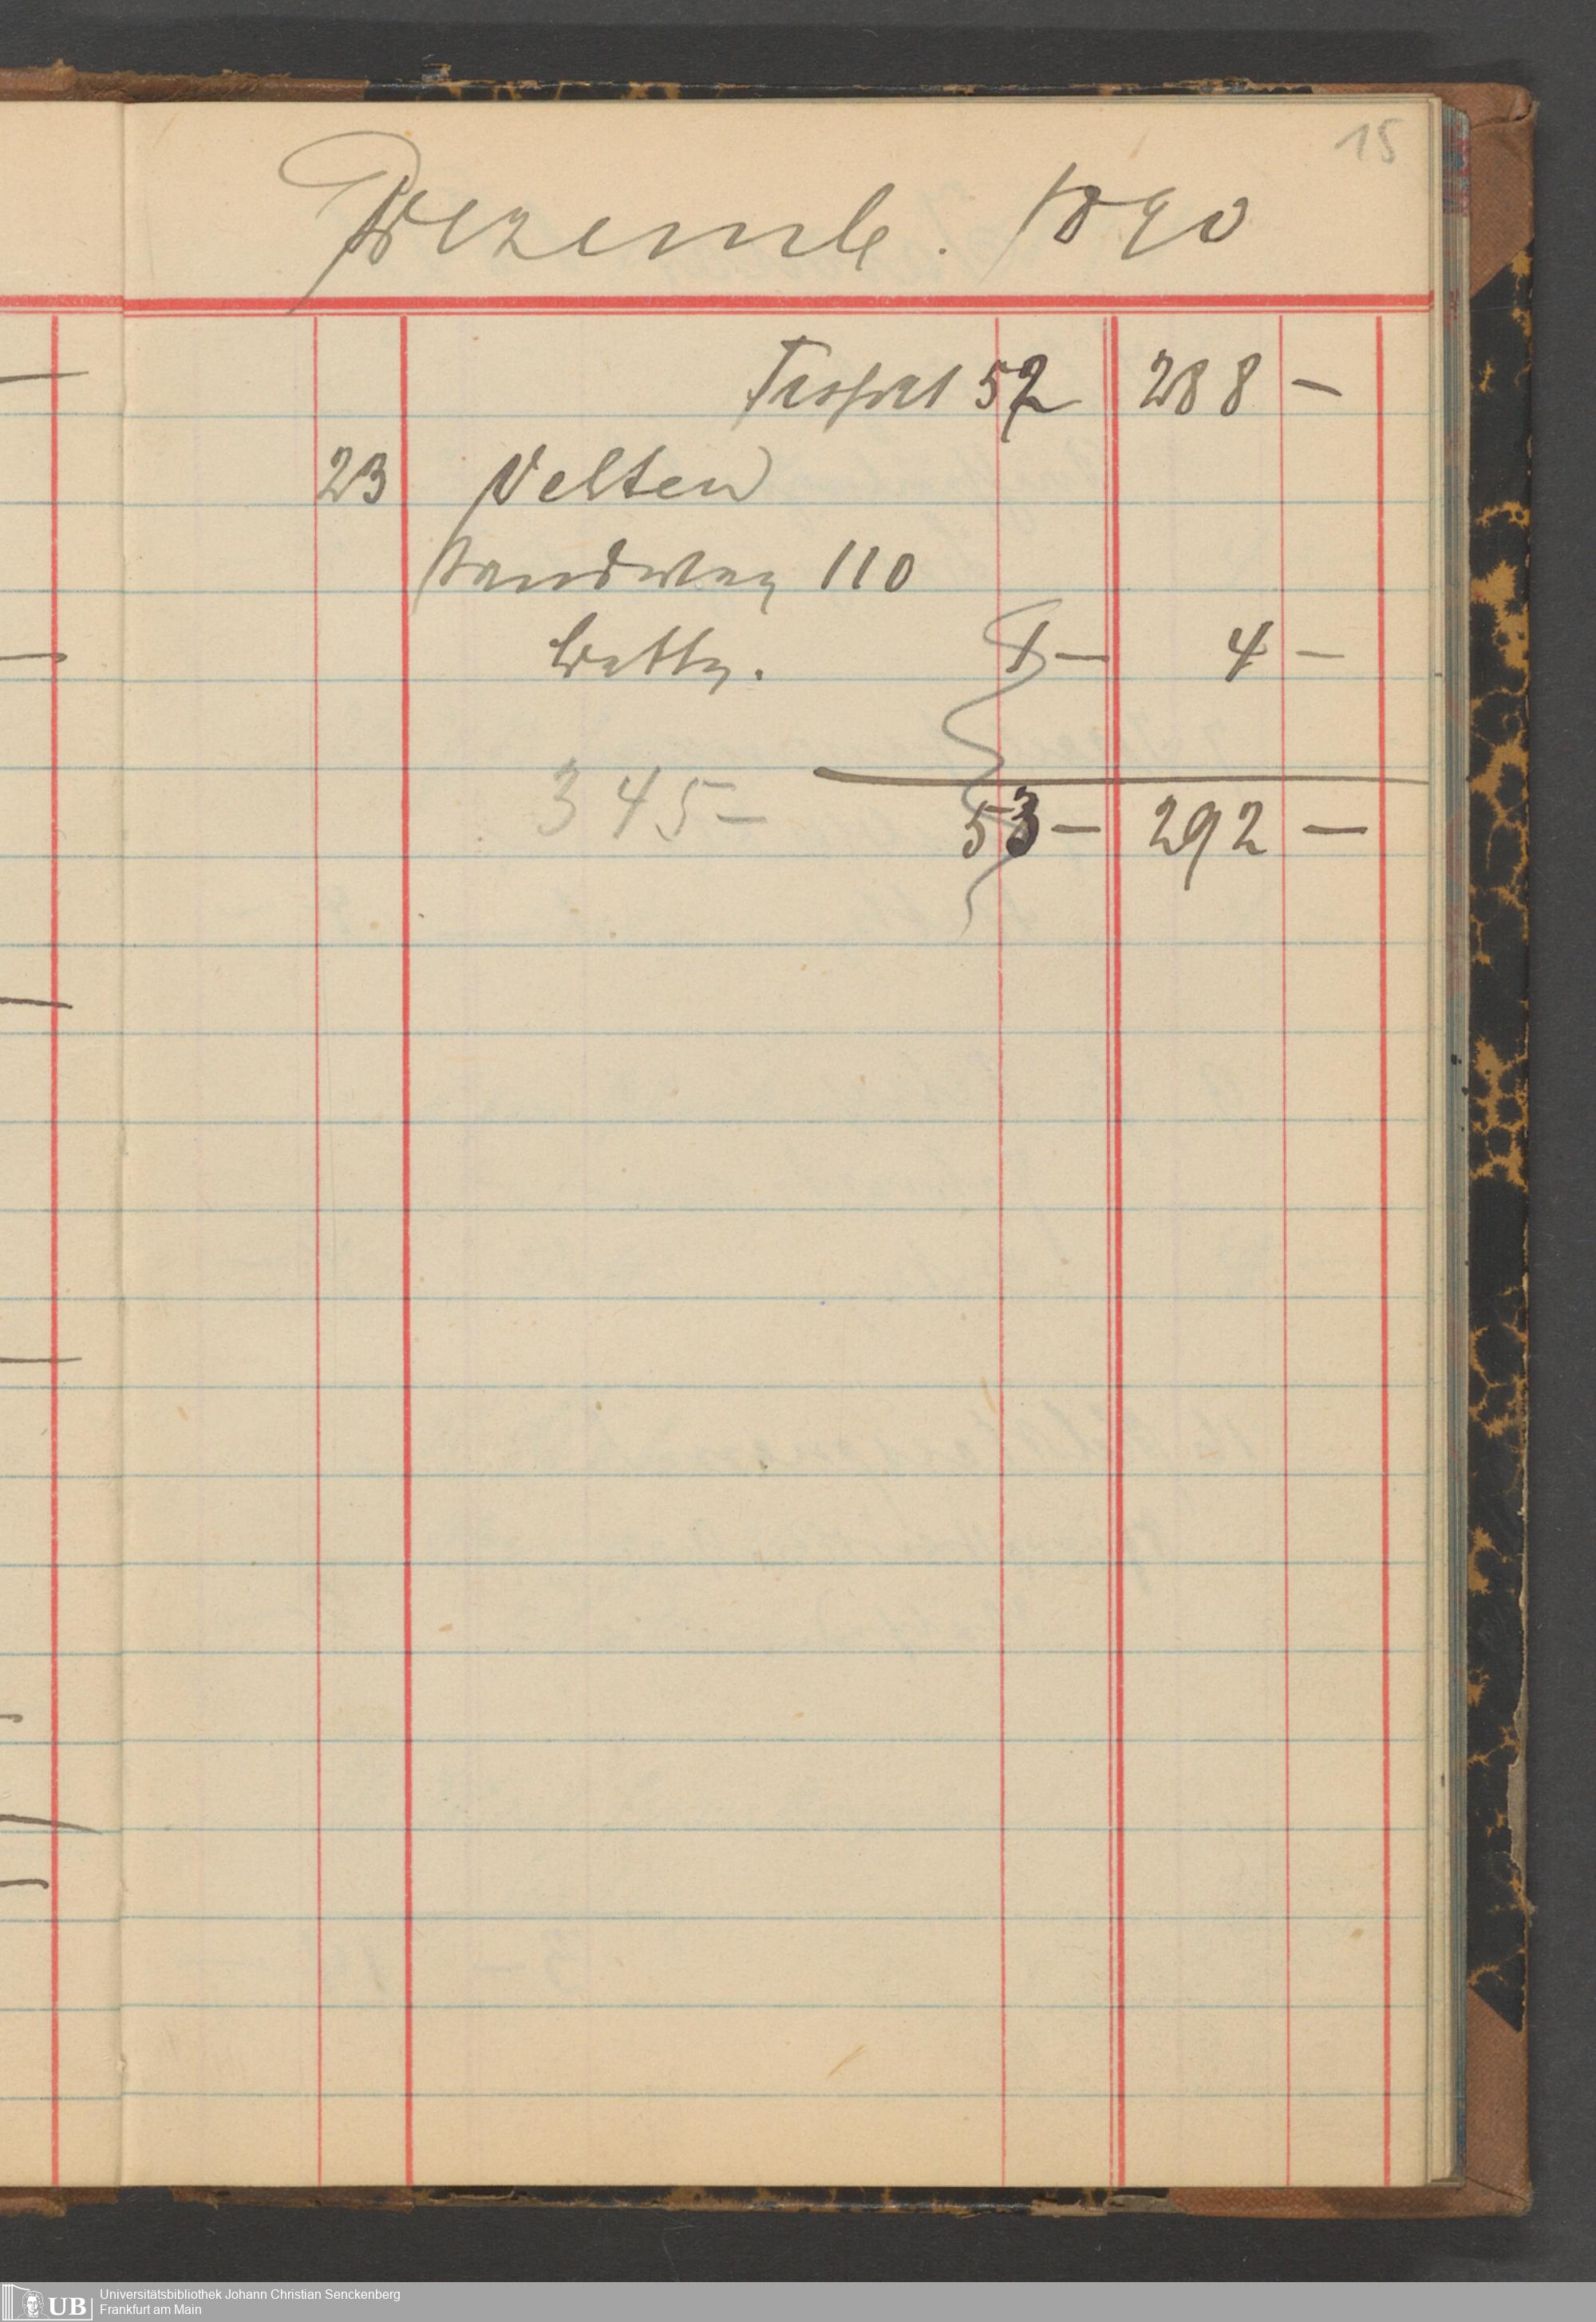 15
Dezemb. 1890
Trsport 52 288 —
23 Velten
Sandweg 110
1 — 4 —
345 — 53 — 292 —
UB Universitätsbibliothek Johann Christian Senckenberg
Frankfurt am Main